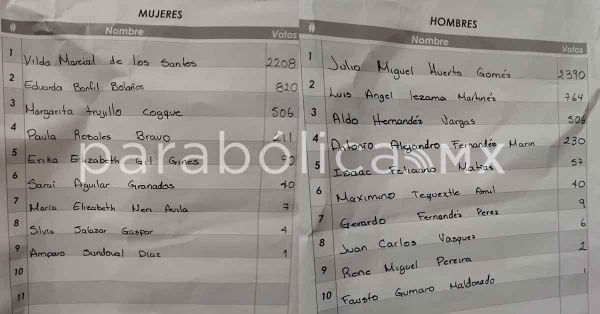 MUJERES
# Nombre Votos
1 Vilda Marcial de los Santos 2208
2 Eduarda Bonfil Bolaños 820
3 Margarita trujillo Cogque 506
4 Paula Rosales Bravo 211
5 Erika Elizabeth Gil Gines 90
6 Sarai Aguilar Granados 40
7 Maria Elizabeth Neri Avila 7
8 Silvia Salazar Gaspar 4
9 Amparo Sandoval Diaz 1
10
11
HOMBRES
# Nombre Votos
1 Julio Miguel Huerta Goméz 2390
2 Luis Angel lezama Martinéz 764
3 Aldo Hernandéz Vargas 506
4 Antonio Alejandro Fernandéz Marin 230
5 Isaac Feliciano Matias 57
6 Maximino Tequextle Amil 40
7 Gerardo Fernandéz Perez 9
8 Juan Carlos Vasquez 6
9 Rene Miguel Pereira 2
10 Fausto Gumaro Maldonado
parabólica MX